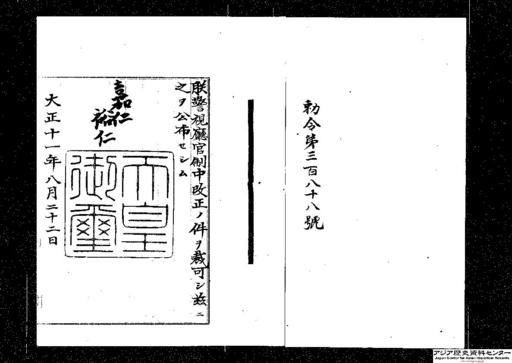 勅令第三百八十八號
朕警視廳官制中改正ノ件ヲ裁可シ茲ニ
之ヲ公布セシム
嘉仁
裕仁
天皇
御璽
大正十一年八月二十二日
アジア歴史資料センター
Japan Center for Asian Historical Records